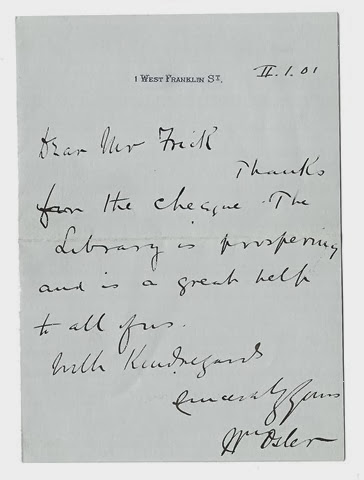 1 WEST FRANKLIN ST.
II.1.01
Dear Mr Frick
Thanks
for the cheque. The
Library is prospering
and is a great help
to all of us.
With Kind regards
Sincerely yours
Wm Osler